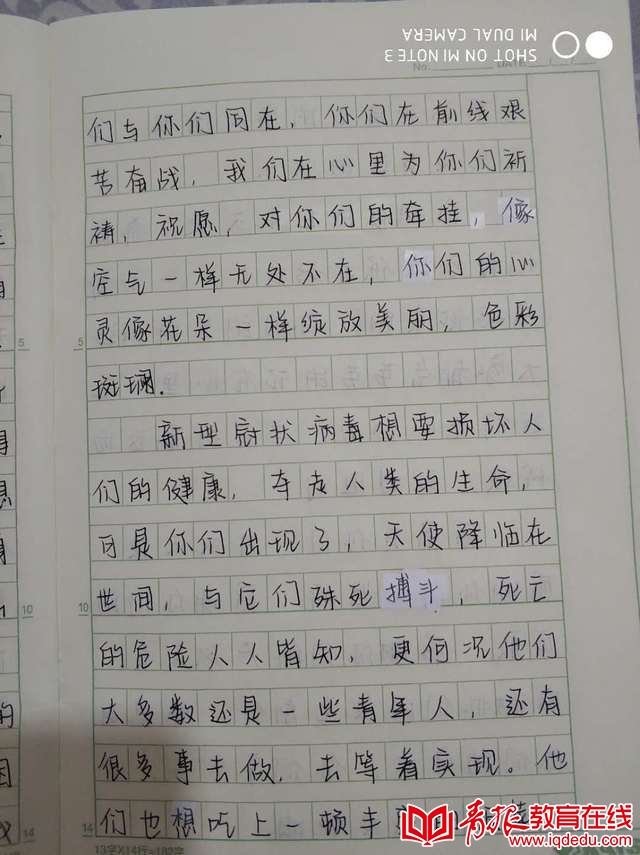 SHOT ON MI NOTE 3
MI DUAL CAMERA
No.
DATE
们与你们同在，你们在前线艰
苦奋战，我们在心里为你们祈
祷，祝愿，对你们的牵挂，像
空气一样无处不在，你们的心
灵像花朵一样绽放美丽，色彩
斑斓.
新型冠状病毒想要损坏人
们的健康，夺走人类的生命，
可是你们出现了，天使降临在
世间，与它们殊死搏斗，死亡
的危险人人皆知，更何况他们
大多数还是一些青年人，还有
很多事去做，去等着实现。他
们也想吃上一顿丰
5
10
14
5
10
14
13字X14行=182字
青报教育在线
www.iqdedu.com